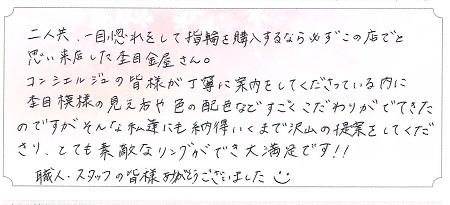 二人共、一目惚れをして指輪を購入するなら必ずこの店でと
思い来店した杢目金屋さん。
コンシェルジュの皆様が丁寧に案内をしてくださっている内に
杢目模様の見え方や色の配色などすごくこだわりがでてきた
のですがそんな私達にも納得いくまで沢山の提案をしてくだ
さり、とても素敵なリングができ大満足です!!
職人・スタッフの皆様ありがとうございました